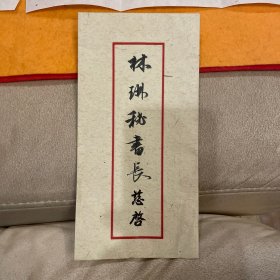 林琳秘書長慈啓